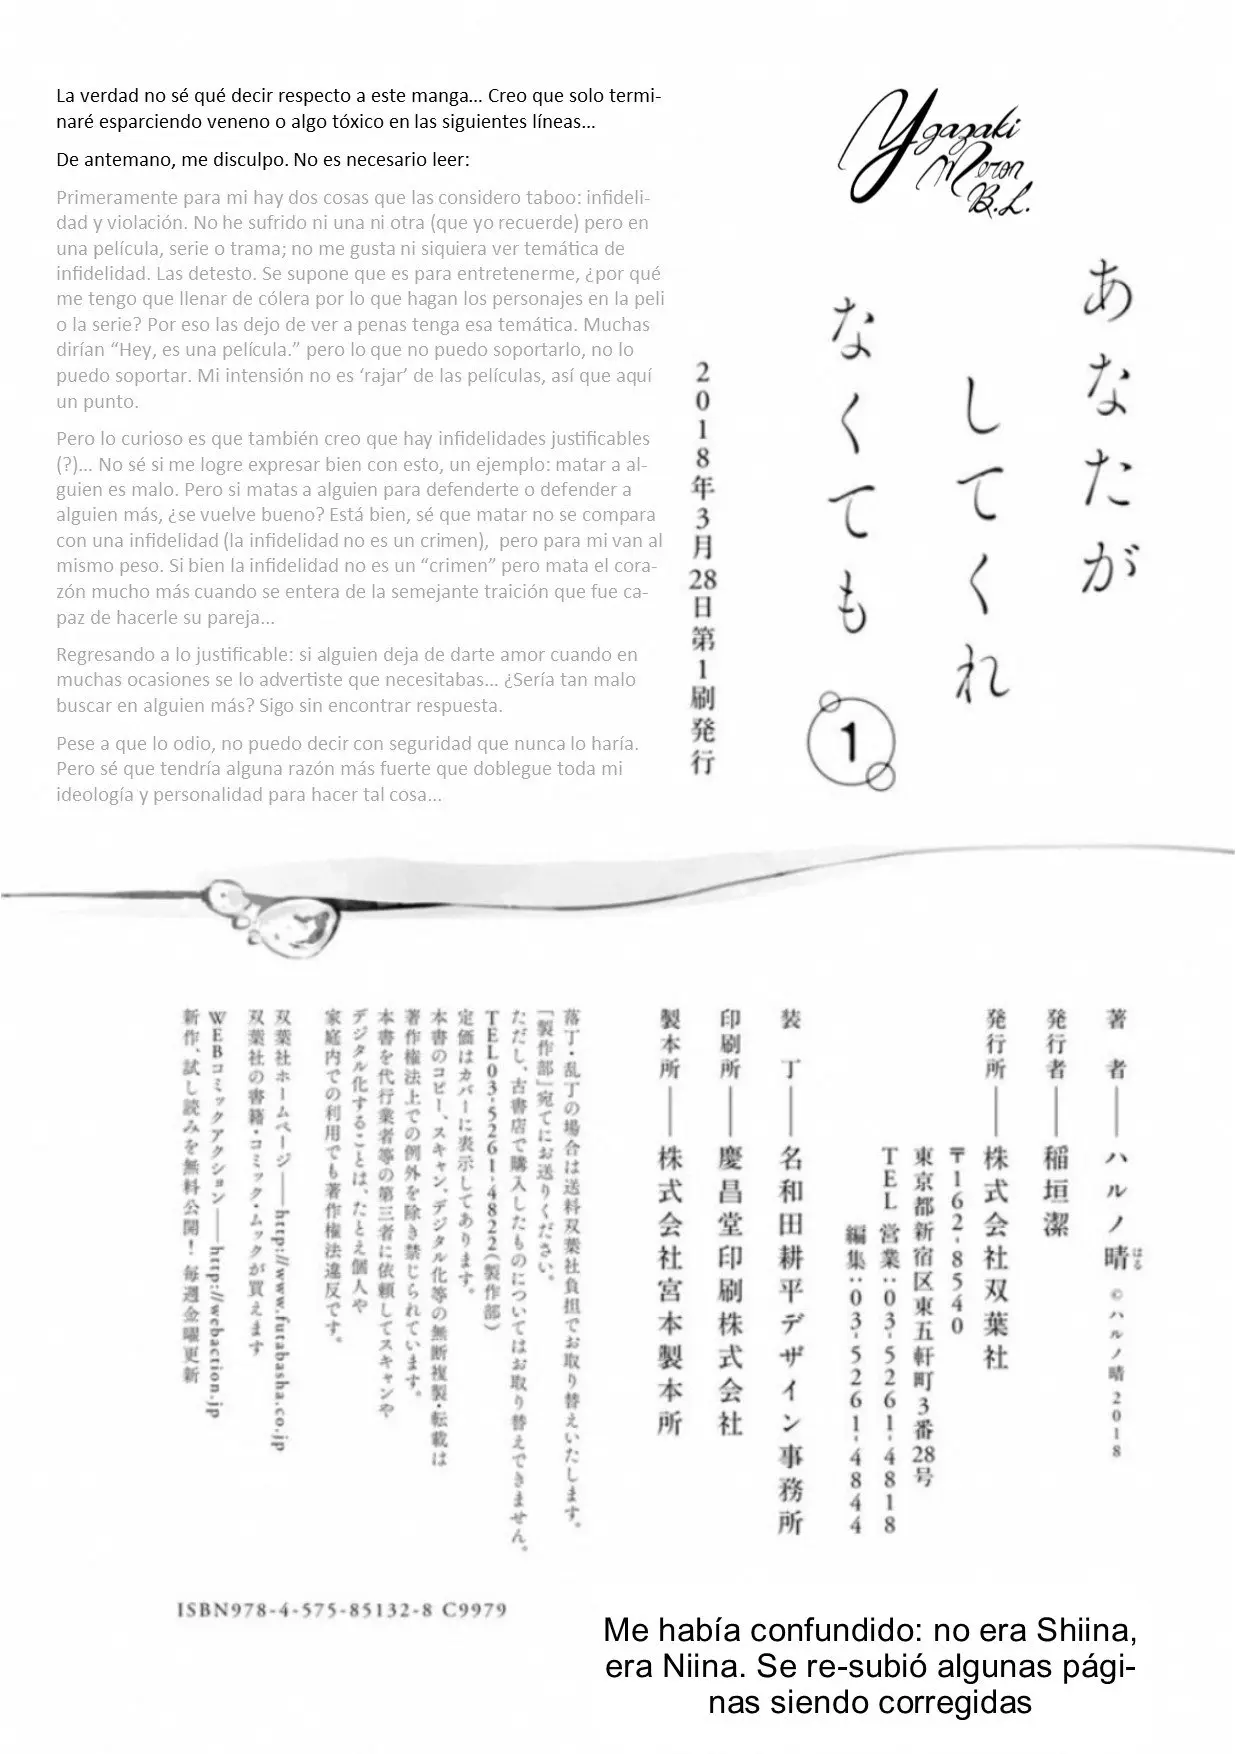 La verdad no sé qué decir respecto a este manga... Creo que solo termi-
naré esparciendo veneno o algo tóxico en las siguientes líneas...
De antemano, me disculpo. No es necesario leer:
Primeramente para mi hay dos cosas que las considero taboo: infideli-
dad y violación. No he sufrido ni una ni otra (que yo recuerde) pero en
una película, serie o trama; no me gusta ni siquiera ver temática de
infidelidad. Las detesto. Se supone que es para entretenerme, ¿por qué
me tengo que llenar de cólera por lo que hagan los personajes en la peli
o la serie? Por eso las dejo de ver a penas tenga esa temática. Muchas
dirían “Hey, es una película.” pero lo que no puedo soportarlo, no lo
puedo soportar. Mi intensión no es ‘rajar’ de las películas, así que aquí
un punto.
Pero lo curioso es que también creo que hay infidelidades justificables
(?)... No sé si me logre expresar bien con esto, un ejemplo: matar a al-
guien es malo. Pero si matas a alguien para defenderte o defender a
alguien más, ¿se vuelve bueno? Está bien, sé que matar no se compara
con una infidelidad (la infidelidad no es un crimen),  pero para mi van al
mismo peso. Si bien la infidelidad no es un “crimen” pero mata el cora-
zón mucho más cuando se entera de la semejante traición que fue ca-
paz de hacerle su pareja...
Regresando a lo justificable: si alguien deja de darte amor cuando en
muchas ocasiones se lo advertiste que necesitabas... ¿Sería tan malo
buscar en alguien más? Sigo sin encontrar respuesta.
Pese a que lo odio, no puedo decir con seguridad que nunca lo haría.
Pero sé que tendría alguna razón más fuerte que doblegue toda mi
ideología y personalidad para hacer tal cosa...
Ygazaki
Meron
B.L.
あなたが
してくれ
なくても
1
2018年3月28日第1刷発行
著 者――ハルノ晴 ©ハルノ晴 2018
はる
発行者――稲垣潔
発行所――株式会社双葉社
〒162-8540
東京都新宿区東五軒町3番28号
TEL 営業:03-5261-4818
編集:03-5261-4844
装 丁――名和田耕平デザイン事務所
印刷所――慶昌堂印刷株式会社
製本所――株式会社宮本製本所
落丁・乱丁の場合は送料双葉社負担でお取り替えいたします。
「製作部」宛てにお送りください。
ただし、古書店で購入したものについてはお取り替えできません。
TEL03-5261-4822(製作部)
定価はカバーに表示してあります。
本書のコピー、スキャン、デジタル化等の無断複製・転載は
著作権法上での例外を除き禁じられています。
本書を代行業者等の第三者に依頼してスキャンや
デジタル化することは、たとえ個人や
家庭内での利用でも著作権法違反です。
双葉社ホームページ――http://www.futabasha.co.jp
双葉社の書籍・コミック・ムックが買えます
WEBコミックアクション――http://webaction.jp
新作、試し読みを無料公開！ 毎週金曜更新
ISBN978-4-575-85132-8 C9979
Me había confundido: no era Shiina,
era Niina. Se re-subió algunas pági-
nas siendo corregidas